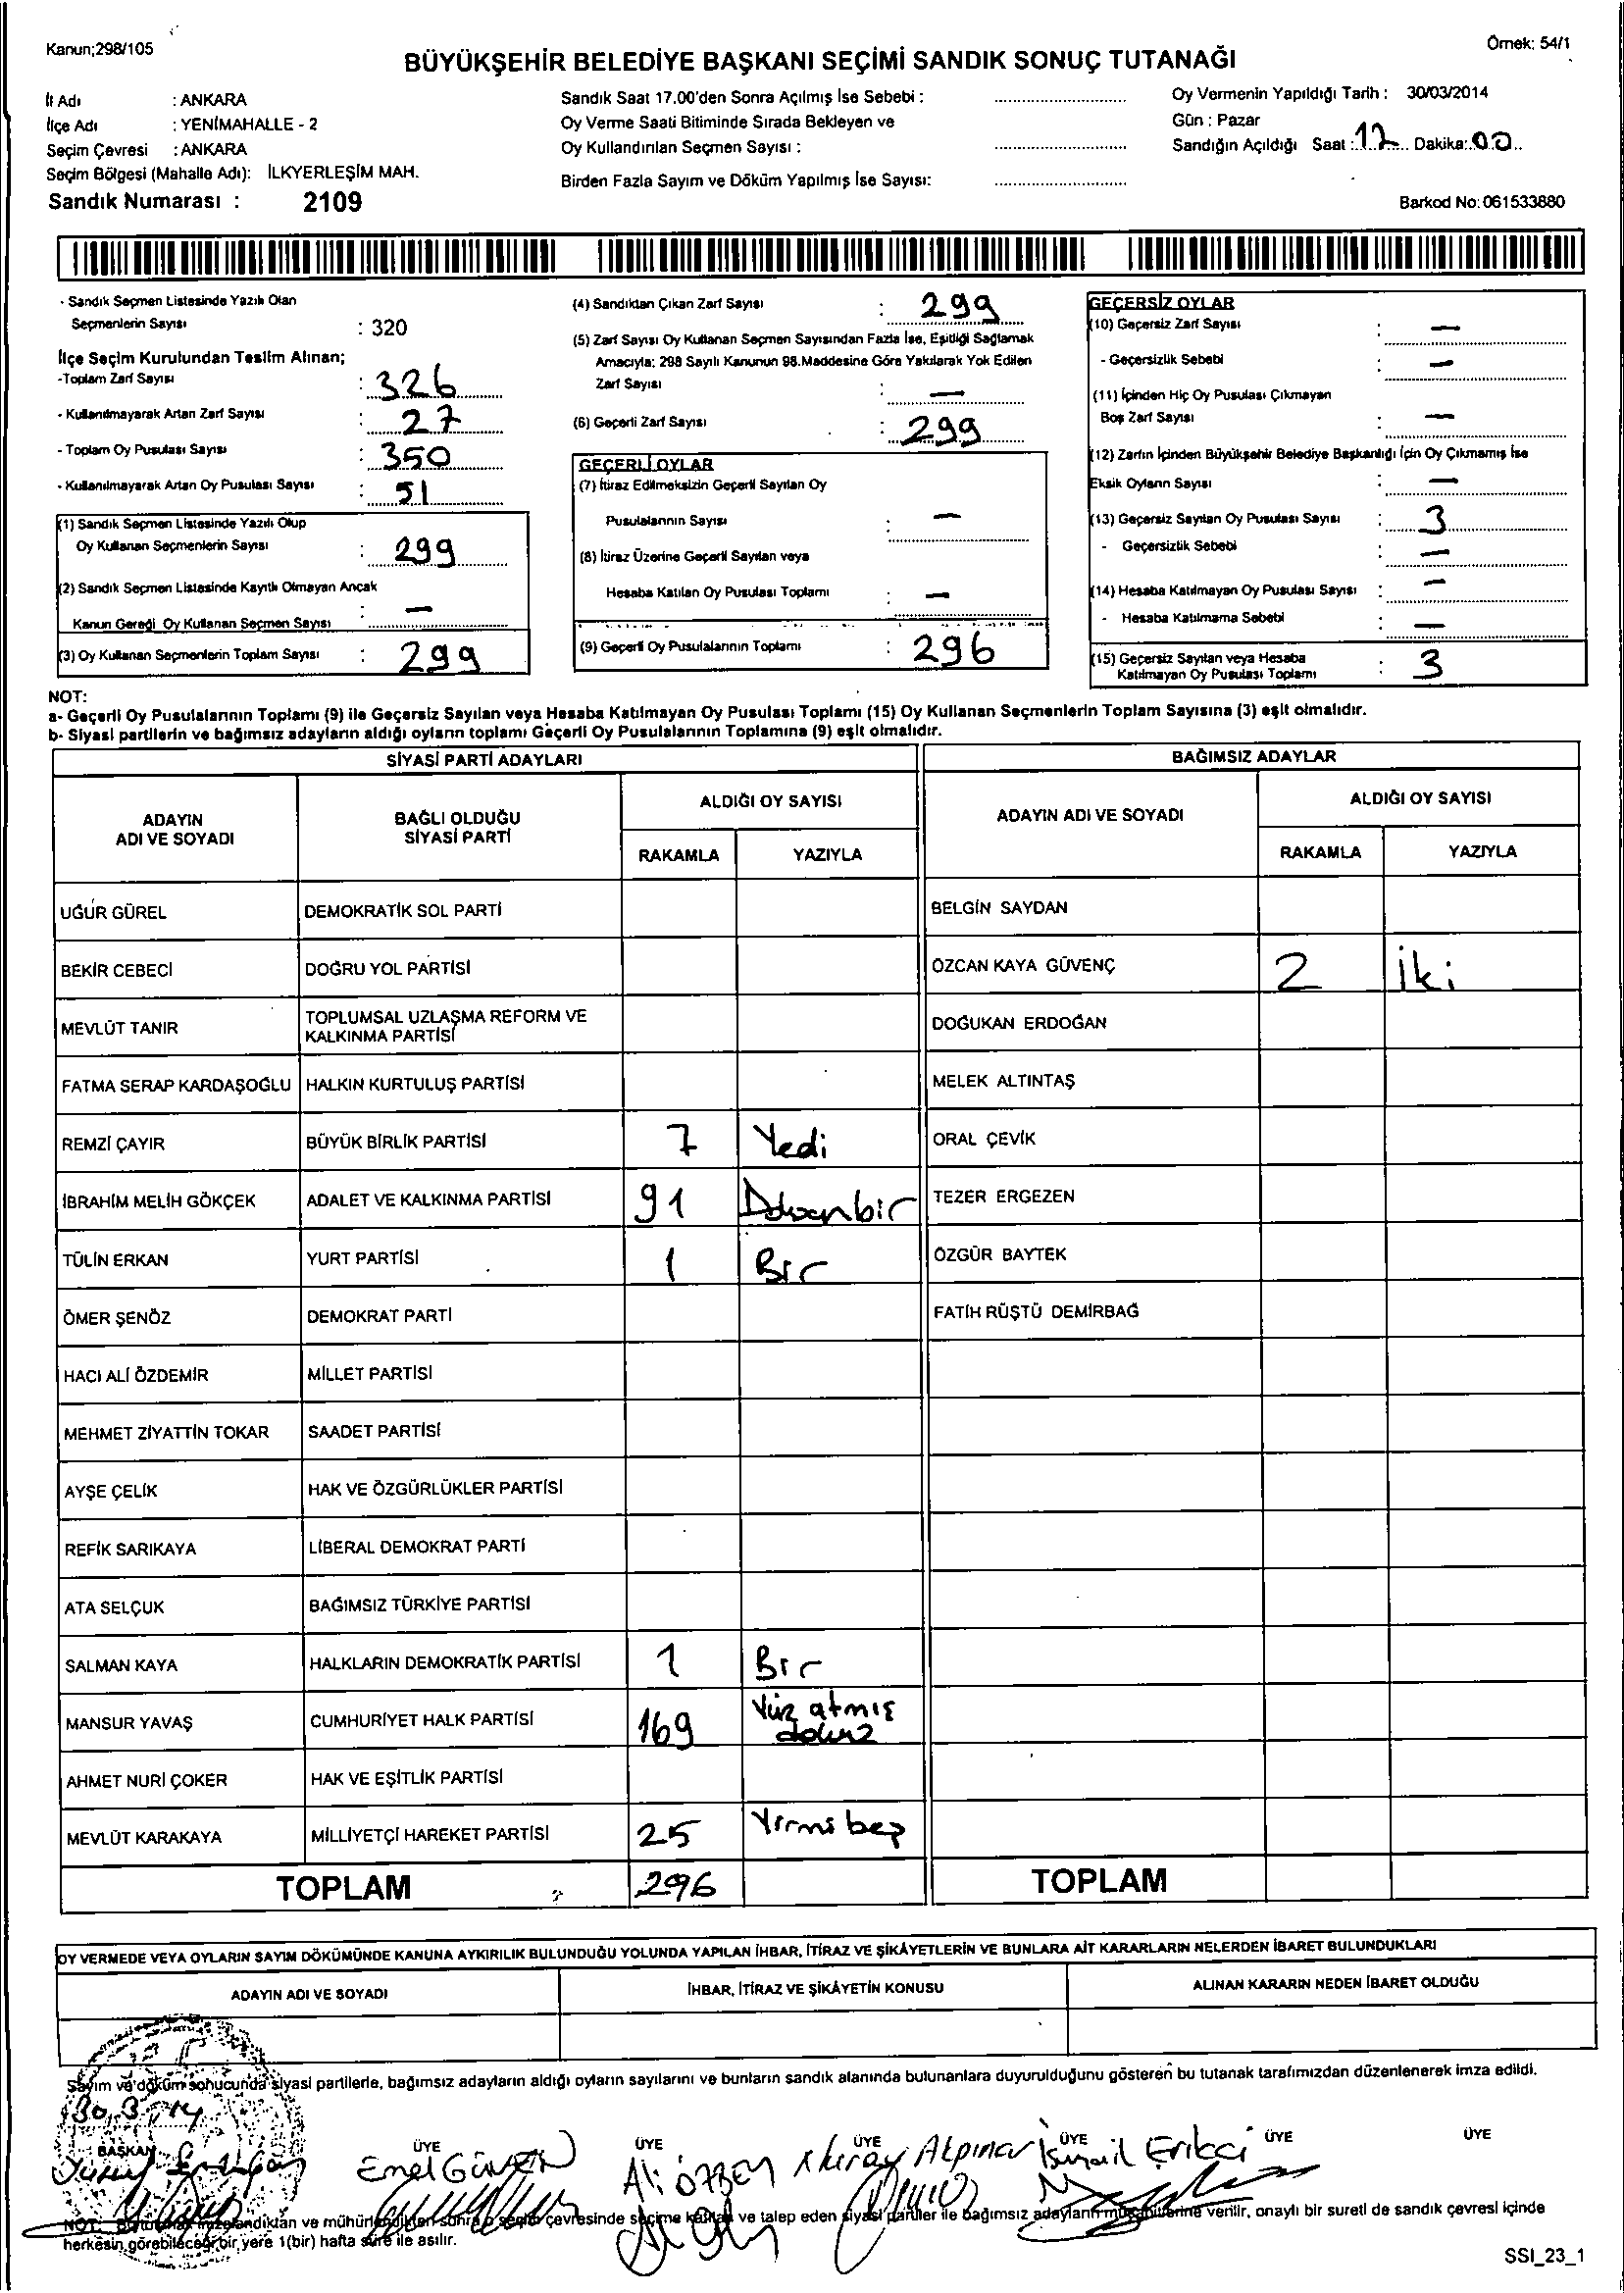 Kanun;298/105
Örnek: 54/1
BÜYÜKŞEHİR BELEDİYE BAŞKANI SEÇİMİ SANDIK SONUÇ TUTANAĞI
İl Adı : ANKARA
İlçe Adı : YENİMAHALLE - 2
Seçim Çevresi : ANKARA
Seçim Bölgesi (Mahalle Adı): İLKYERLEŞİM MAH.
Sandık Numarası : 2109
Sandık Saat 17.00'den Sonra Açılmış İse Sebebi :
Oy Verme Saati Bitiminde Sırada Bekleyen ve
Oy Kullandırılan Seçmen Sayısı :
Birden Fazla Sayım ve Döküm Yapılmış İse Sayısı:
Oy Vermenin Yapıldığı Tarih : 30/03/2014
Gün : Pazar
Sandığın Açıldığı Saat : 17 Dakika: 00
Barkod No: 061533880
- Sandık Seçmen Listesinde Yazılı Olan
Seçmenlerin Sayısı : 320
İlçe Seçim Kurulundan Teslim Alınan;
-Toplam Zarf Sayısı : 326
- Kullanılmayarak Artan Zarf Sayısı : 27
- Toplam Oy Pusulası Sayısı : 350
- Kullanılmayarak Artan Oy Pusulası Sayısı : 51
(1) Sandık Seçmen Listesinde Yazılı Olup
Oy Kullanan Seçmenlerin Sayısı : 299
(2) Sandık Seçmen Listesinde Kayıtlı Olmayan Ancak
Kanun Gereği Oy Kullanan Seçmen Sayısı : —
(3) Oy Kullanan Seçmenlerin Toplam Sayısı : 299
(4) Sandıktan Çıkan Zarf Sayısı : 299
(5) Zarf Sayısı Oy Kullanan Seçmen Sayısından Fazla İse, Eşitliği Sağlamak
Amacıyla; 298 Sayılı Kanunun 98.Maddesine Göre Yakılarak Yok Edilen
Zarf Sayısı : —
(6) Geçerli Zarf Sayısı : 299
GEÇERLİ OYLAR
(7) İtiraz Edilmeksizin Geçerli Sayılan Oy
Pusulalarının Sayısı : —
(8) İtiraz Üzerine Geçerli Sayılan veya
Hesaba Katılan Oy Pusulası Toplamı : —
(9) Geçerli Oy Pusulalarının Toplamı : 296
GEÇERSİZ OYLAR
(10) Geçersiz Zarf Sayısı : —
- Geçersizlik Sebebi : —
(11) İçinden Hiç Oy Pusulası Çıkmayan
Boş Zarf Sayısı : —
(12) Zarfın İçinden Büyükşehir Belediye Başkanlığı İçin Oy Çıkmamış İse
Eksik Oyların Sayısı : —
(13) Geçersiz Sayılan Oy Pusulası Sayısı : 3
- Geçersizlik Sebebi : —
(14) Hesaba Katılmayan Oy Pusulası Sayısı : —
- Hesaba Katılmama Sebebi : —
(15) Geçersiz Sayılan veya Hesaba
Katılmayan Oy Pusulası Toplamı : 3
NOT:
a- Geçerli Oy Pusulalarının Toplamı (9) ile Geçersiz Sayılan veya Hesaba Katılmayan Oy Pusulası Toplamı (15) Oy Kullanan Seçmenlerin Toplam Sayısına (3) eşit olmalıdır.
b- Siyasi partilerin ve bağımsız adayların aldığı oyların toplamı Geçerli Oy Pusulalarının Toplamına (9) eşit olmalıdır.
SİYASİ PARTİ ADAYLARI
ADAYIN
ADI VE SOYADI
BAĞLI OLDUĞU
SİYASİ PARTİ
ALDIĞI OY SAYISI
RAKAMLA YAZIYLA
UĞUR GÜREL DEMOKRATİK SOL PARTİ
BEKİR CEBECİ DOĞRU YOL PARTİSİ
MEVLÜT TANIR TOPLUMSAL UZLAŞMA REFORM VE
KALKINMA PARTİSİ
FATMA SERAP KARDAŞOĞLU HALKIN KURTULUŞ PARTİSİ
REMZİ ÇAYIR BÜYÜK BİRLİK PARTİSİ 7 Yedi
İBRAHİM MELİH GÖKÇEK ADALET VE KALKINMA PARTİSİ 91
TÜLİN ERKAN YURT PARTİSİ 1 Bir
ÖMER ŞENÖZ DEMOKRAT PARTİ
HACI ALİ ÖZDEMİR MİLLET PARTİSİ
MEHMET ZİYATTİN TOKAR SAADET PARTİSİ
AYŞE ÇELİK HAK VE ÖZGÜRLÜKLER PARTİSİ
REFİK SARIKAYA LİBERAL DEMOKRAT PARTİ
ATA SELÇUK BAĞIMSIZ TÜRKİYE PARTİSİ
SALMAN KAYA HALKLARIN DEMOKRATİK PARTİSİ 1 Bir
MANSUR YAVAŞ CUMHURİYET HALK PARTİSİ 169 Yüz atmış
AHMET NURİ ÇOKER HAK VE EŞİTLİK PARTİSİ
MEVLÜT KARAKAYA MİLLİYETÇİ HAREKET PARTİSİ 25 Yirmi beş
TOPLAM 296
BAĞIMSIZ ADAYLAR
ADAYIN ADI VE SOYADI
ALDIĞI OY SAYISI
RAKAMLA YAZIYLA
BELGİN SAYDAN
ÖZCAN KAYA GÜVENÇ 2 İki
DOĞUKAN ERDOĞAN
MELEK ALTINTAŞ
ORAL ÇEVİK
TEZER ERGEZEN
ÖZGÜR BAYTEK
FATİH RÜŞTÜ DEMİRBAĞ
TOPLAM
OY VERMEDE VEYA OYLARIN SAYIM DÖKÜMÜNDE KANUNA AYKIRILIK BULUNDUĞU YOLUNDA YAPILAN İHBAR, İTİRAZ VE ŞİKÂYETLERİN VE BUNLARA AİT KARARLARIN NELERDEN İBARET BULUNDUKLARI
ADAYIN ADI VE SOYADI İHBAR, İTİRAZ VE ŞİKÂYETİN KONUSU ALINAN KARARIN NEDEN İBARET OLDUĞU
Sayım ve döküm sonucunda siyasi partilerle, bağımsız adayların aldığı oyların sayılarını ve bunların sandık alanında bulunanlara duyurulduğunu gösteren bu tutanak tarafımızdan düzenlenerek imza edildi.
30.3.14
BAŞKAN ÜYE ÜYE ÜYE ÜYE ÜYE ÜYE
Yusuf Emel Ali ÖZBEY Alpınar İsmail Erikci
NOT: Bu tutanak imzalandıktan ve mühürlendikten sonra o seçim çevresinde seçime katılan ve talep eden siyasi partiler ile bağımsız adayların müşahitlerine verilir, onaylı bir sureti de sandık çevresi içinde
herkesin görebileceği bir yere 1(bir) hafta süre ile asılır.
SSI_23_1